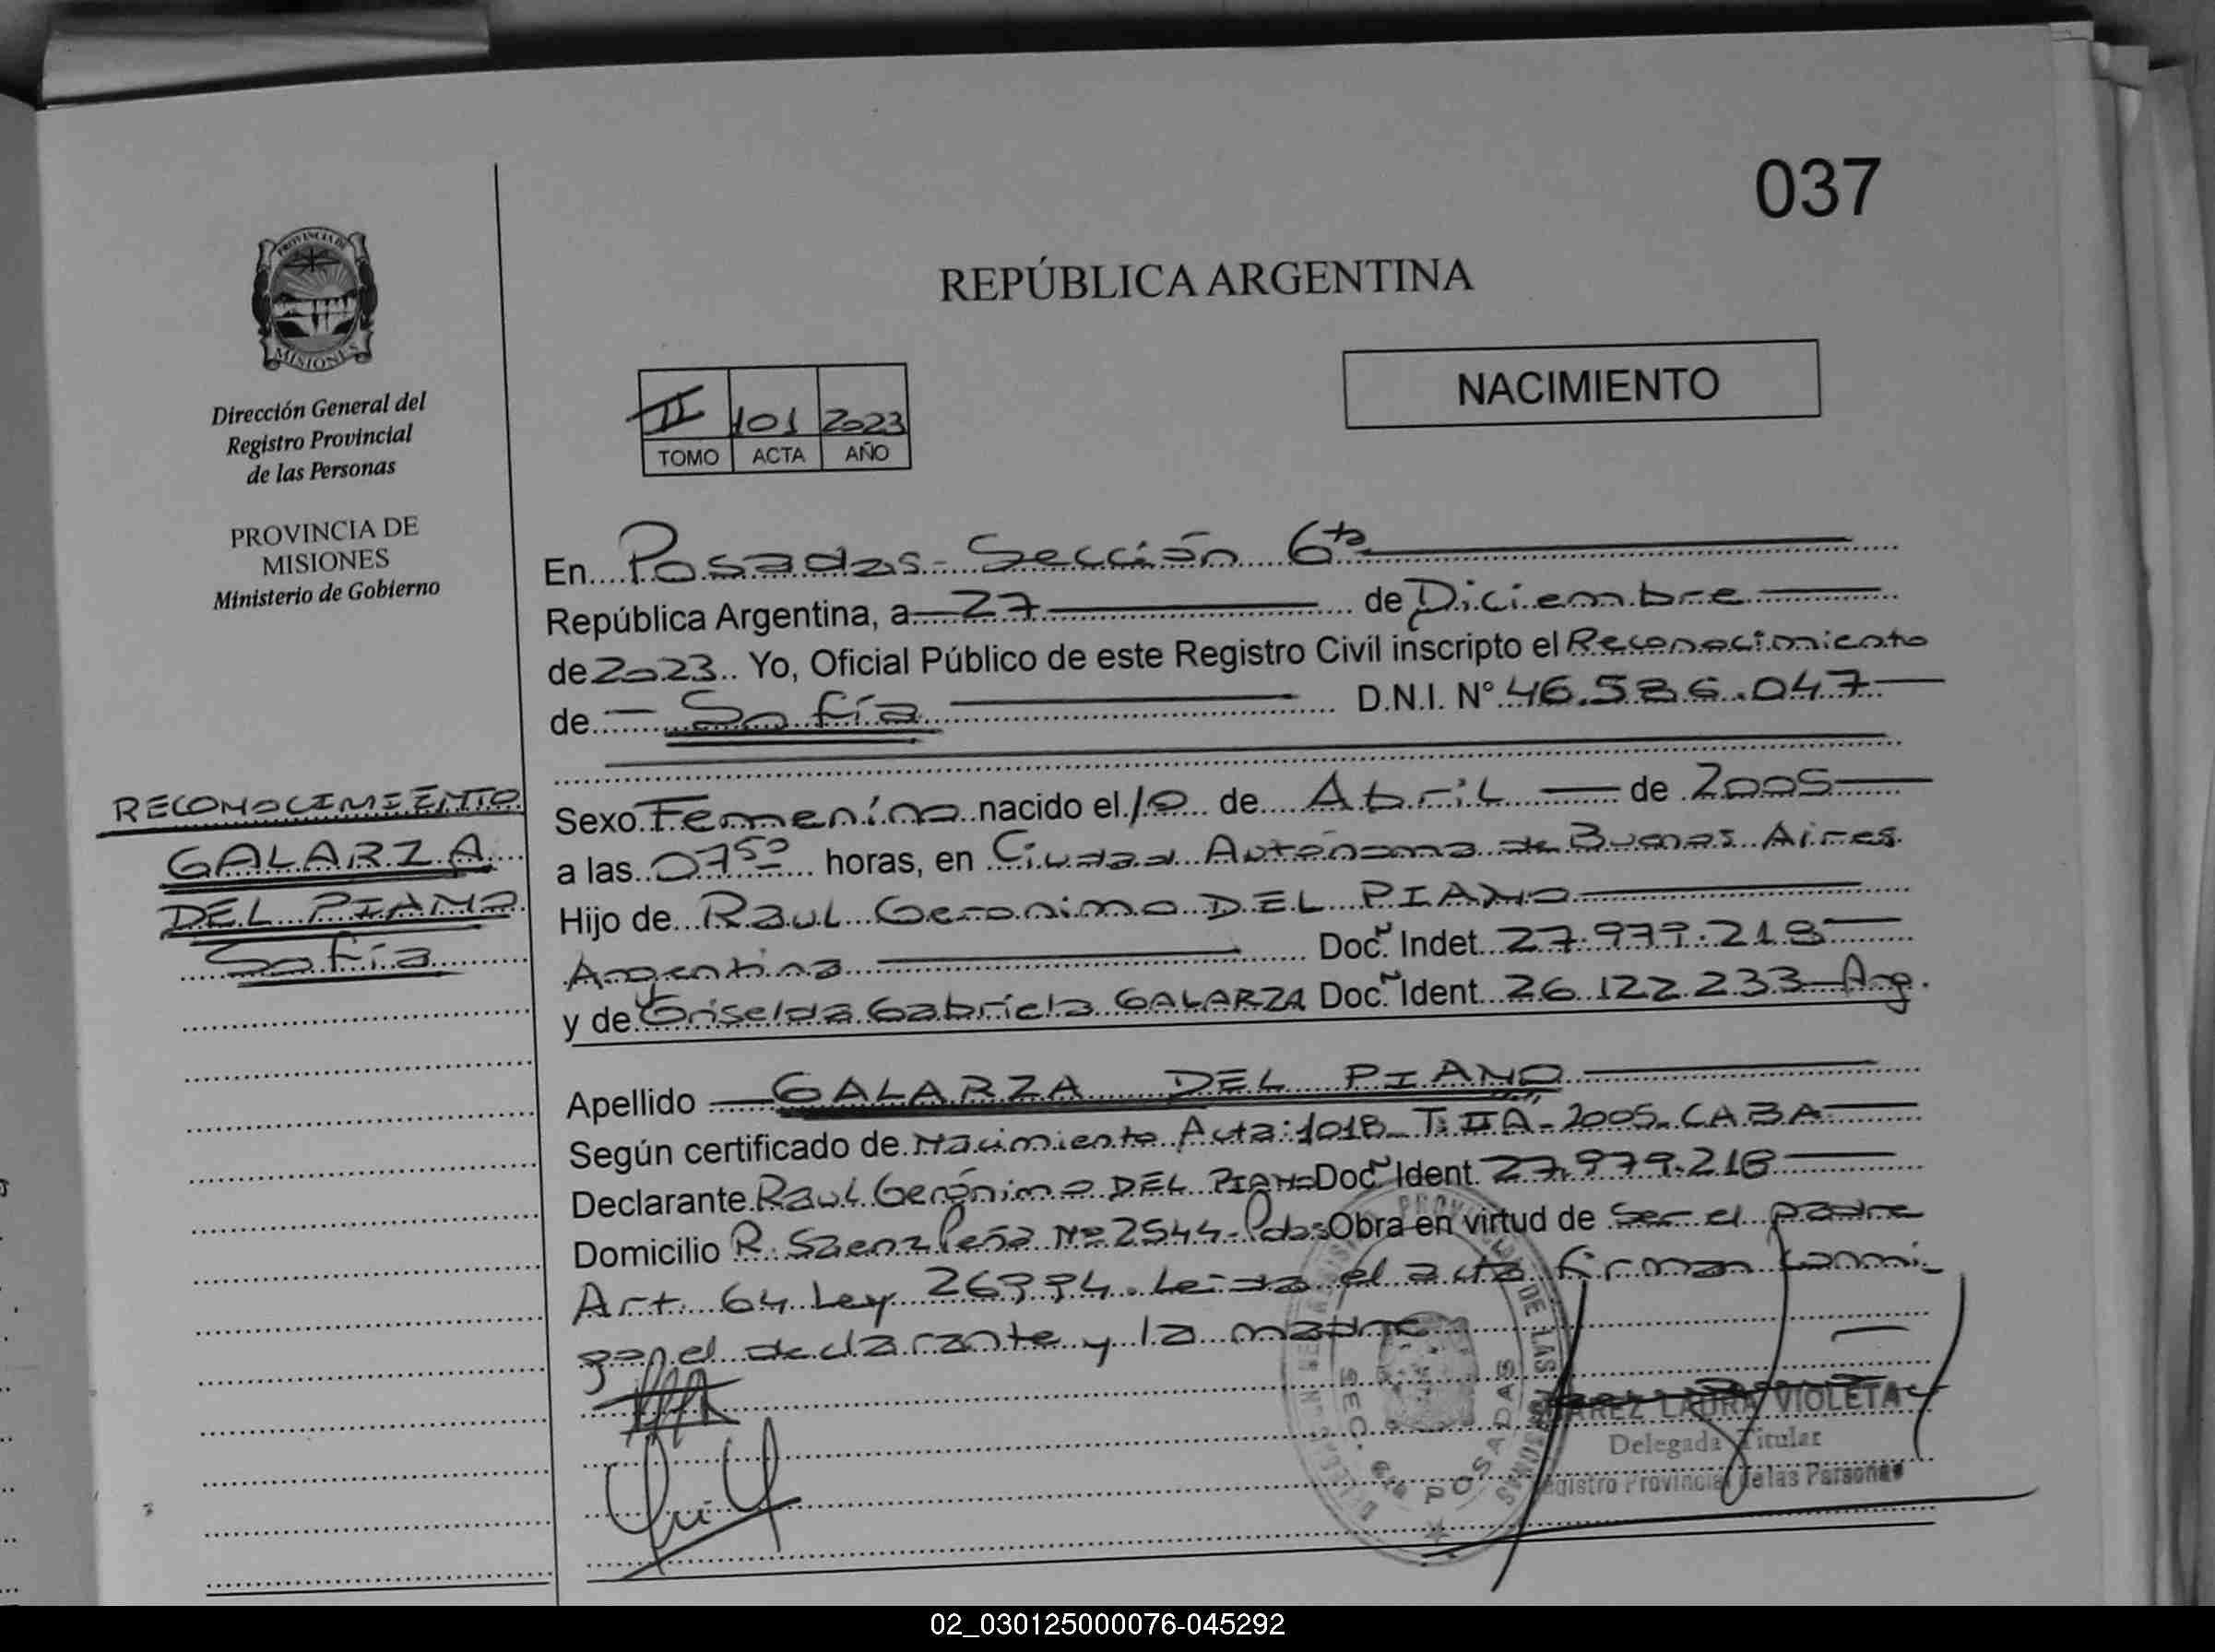 037
PROVINCIA DE
MISIONES
Dirección General del
Registro Provincial
de las Personas
PROVINCIA DE
MISIONES
Ministerio de Gobierno
RECONOCIMIENTO
GALARZA
DEL PIANO
Sofía
REPÚBLICA ARGENTINA
NACIMIENTO
II 101 2023
TOMO ACTA AÑO
En Posadas - Sección 6ta
República Argentina, a 27 de Diciembre
de 2023 Yo, Oficial Público de este Registro Civil inscripto el Reconocimiento
de Sofía D.N.I. N° 46.586.047
Sexo Femenino nacido el 1º de Abril de 2005
a las 07 50 horas, en Ciudad Autónoma de Buenos Aires
Hijo de Raul Geronimo DEL PIANO
Argentina Doc. Indet. 27.979.218
y de Griselda Gabriela GALARZA Doc. Ident. 26.122.233 Arg.
Apellido GALARZA DEL PIANO
Según certificado de Nacimiento Acta: 1018 - T: II A - 2005 - CABA
Declarante Raul Gerónimo DEL PIANO Doc. Ident. 27.979.218
Domicilio R. Saenz Peña Nº 2544 - Pdas Obra en virtud de ser el padre
Art. 64 Ley 26994. Leida el acta firman conmi-
go el declarante y la madre
SEC. 6ta POSADAS
LAURA VIOLETA
Delegada Titular
Registro Provincial de las Personas
02_030125000076-045292